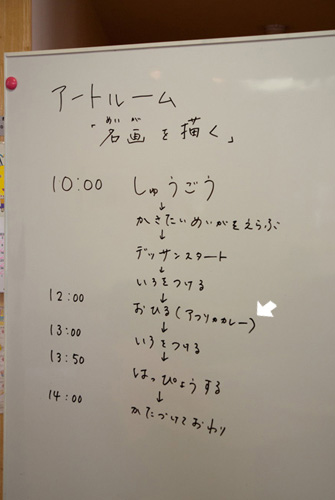 アートルーム
「名画を描く」
めいが
10:00 しゅうごう
↓
かきたいめいがをえらぶ
↓
デッサンスタート
↓
いろをつける
↓
12:00 おひる(アフリカカレー)
↓
13:00 いろをつける
↓
13:50 はっぴょうする
↓
14:00 かたづけておわり